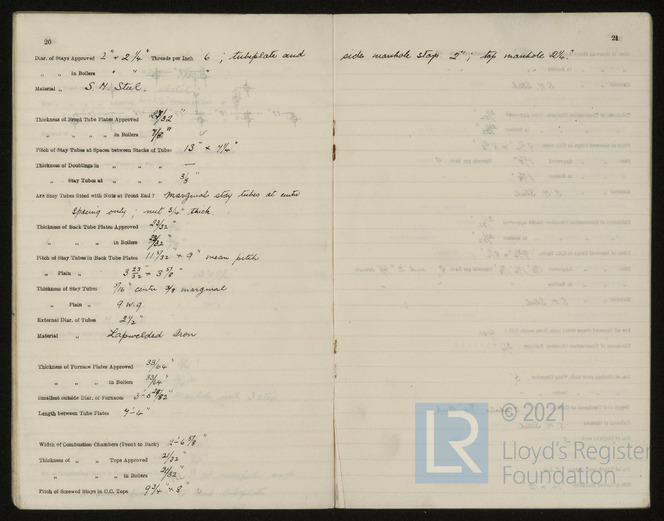 20
Diar. of Stays Approved 2" + 2 1/4" Threads per Inch 6 ; tubeplate and
" " in Boilers " " "
Material " S. M. Steel.
Thickness of Front Tube Plates Approved 29/32 "
" " " " in Boilers 7/8 "
Pitch of Stay Tubes at Spaces between Stacks of Tubes 13" + 7 1/4"
Thickness of Doublings in " " " —
" Stay Tubes at " " " 3/8 "
Are Stay Tubes fitted with Nuts at Front End? Marginal stay tubes at centre
spacing only ; nut 3/4" thick.
Thickness of Back Tube Plates Approved
" " " " in Boilers
Pitch of Stay Tubes in Back Tube Plates + 9" mean pitch
" Plain " 3 23/32 + 3 7/8 "
Thickness of Stay Tubes 5/16" centre 3/8 marginal
" Plain " 9 w.g
External Diar. of Tubes 2 1/2 "
Material " Lapwelded Iron
Thickness of Furnace Plates Approved 33/64 "
" " " in Boilers 33/64 "
Smallest outside Diar. of Furnaces
Length between Tube Plates
Width of Combustion Chambers (Front to Back) 2'-6 5/8 "
Thickness of " " Tops Approved 21/32 "
" " " " in Boilers 21/32 "
Pitch of Screwed Stays in C.C. Tops 9 3/4" + 8"
21
side manhole stays 2" ; top manhole 2 1/4".
© 2021
LR
Lloyd's Register
Foundation